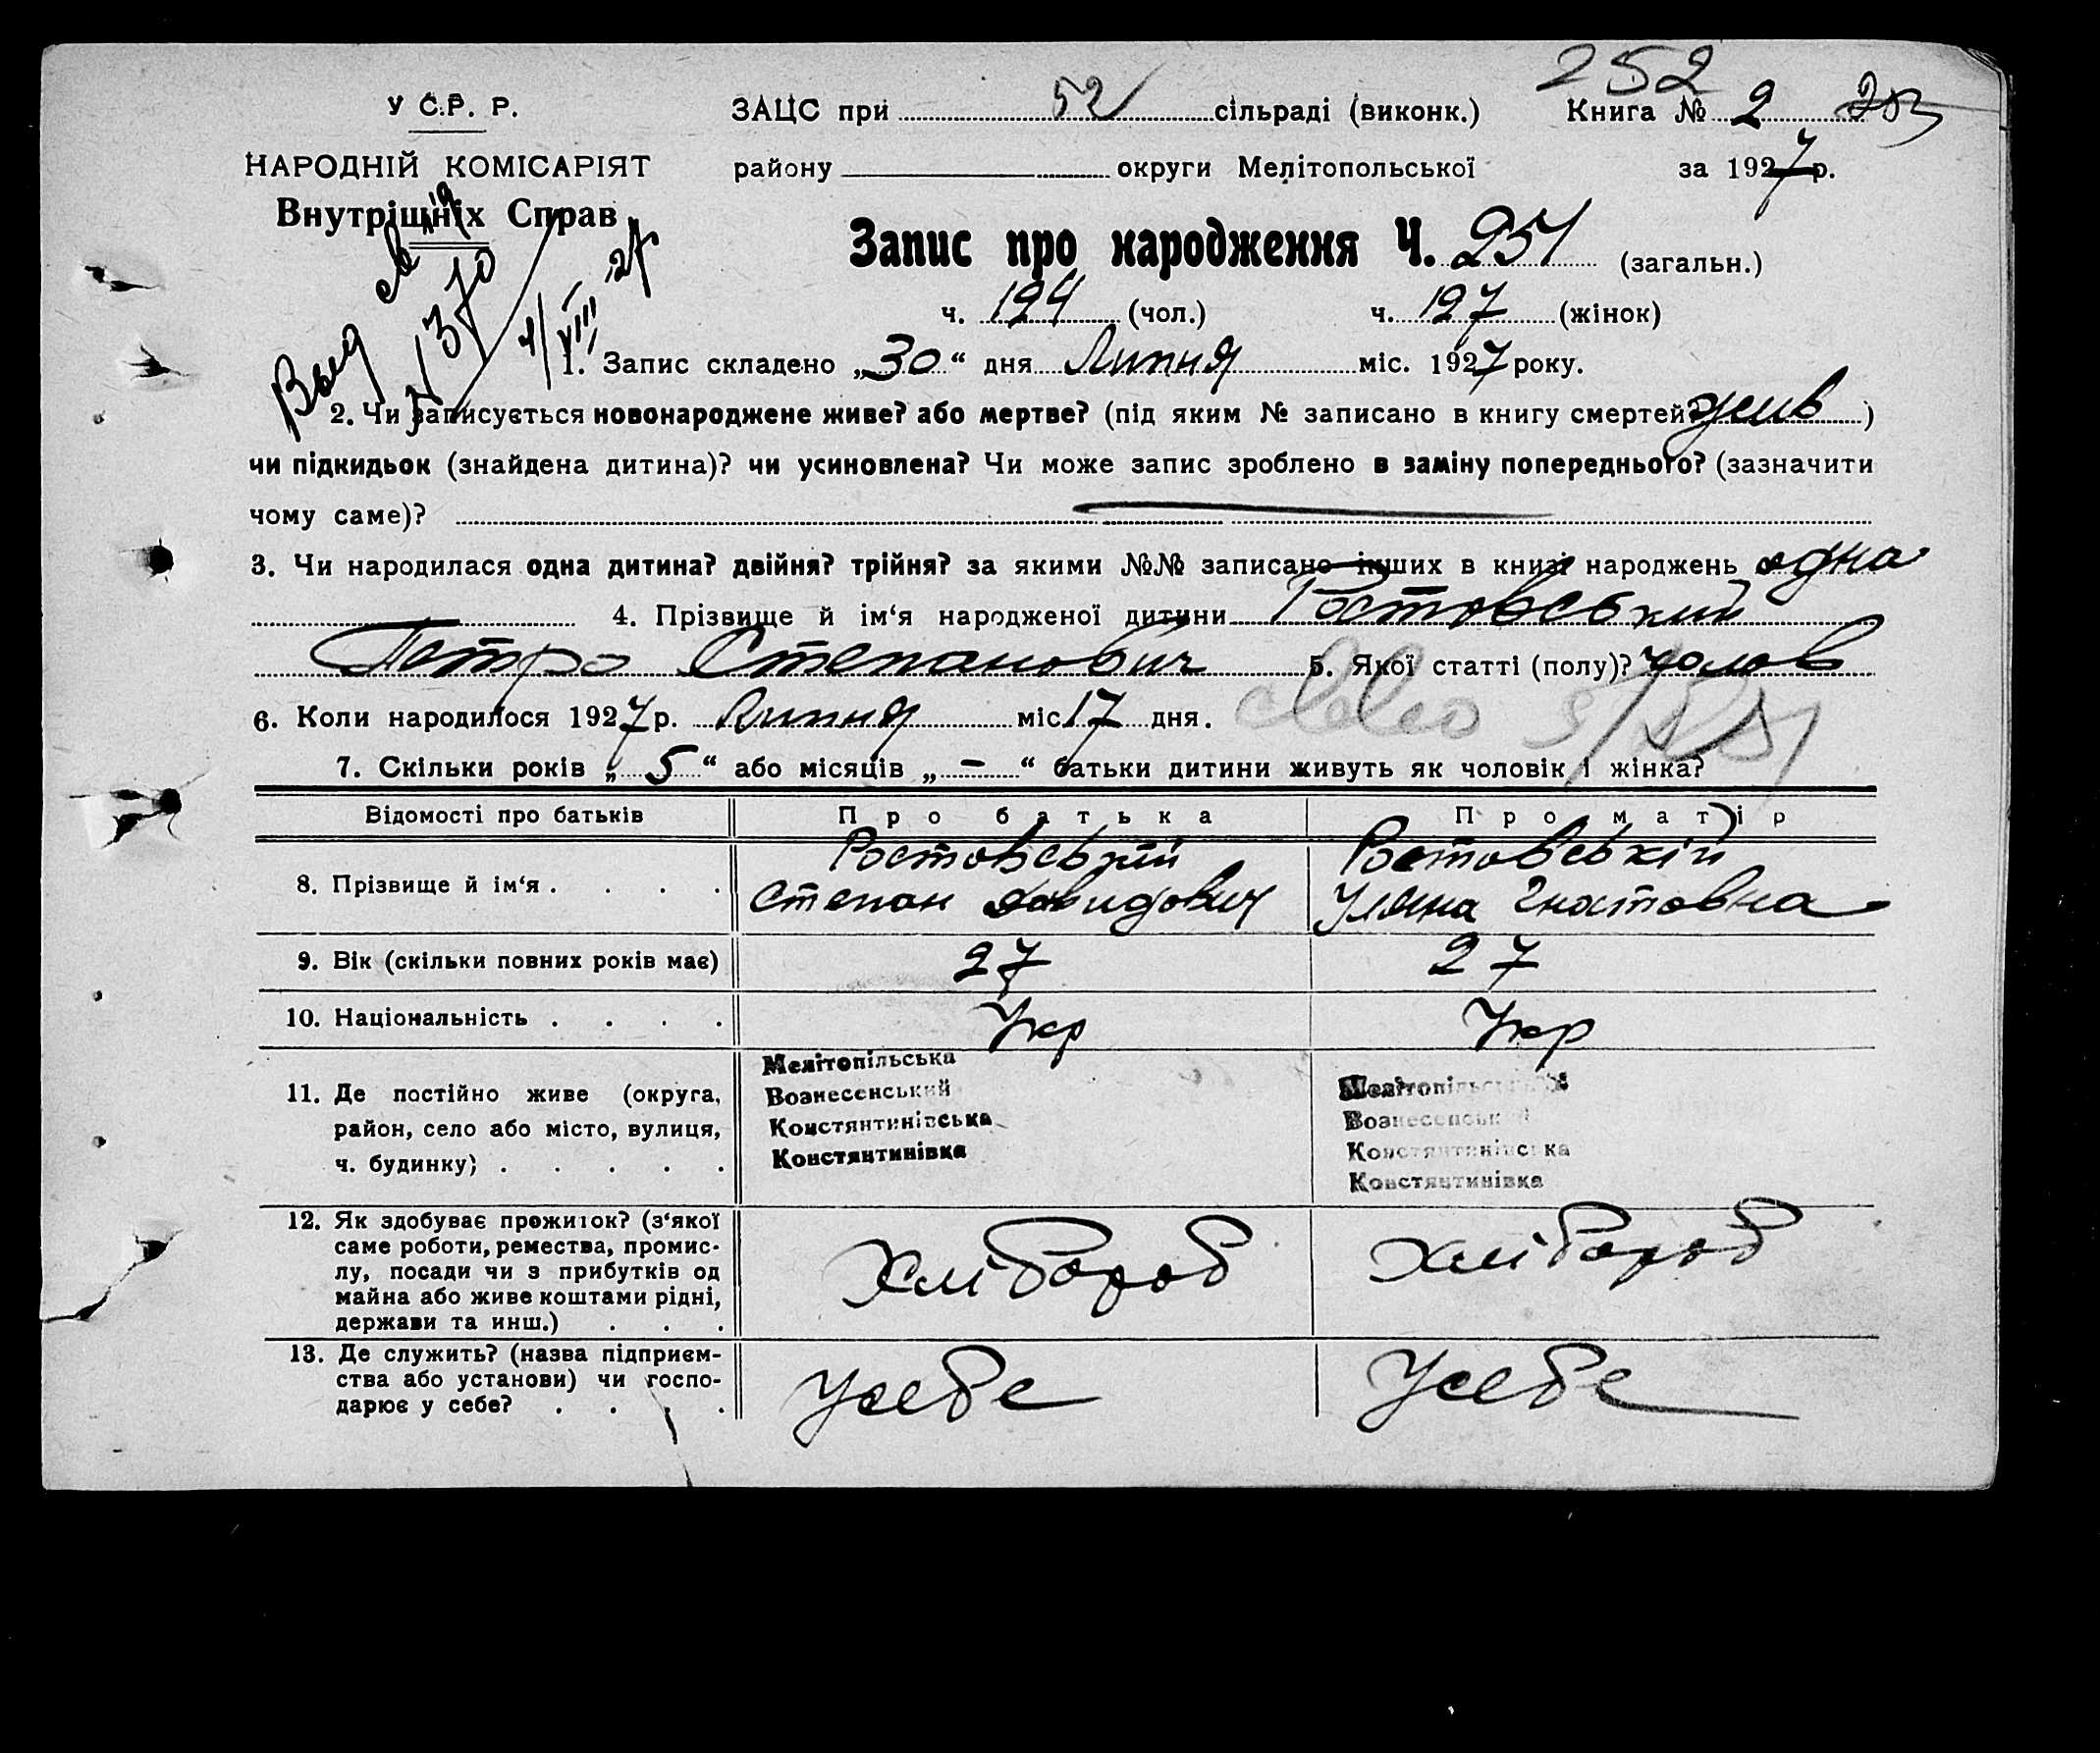 252
У С.Р. Р. ЗАЦС при 52 сільраді (виконк.) Книга № 2
НАРОДНІЙ КОМІСАРІЯТ району округи Мелітопольської за 1927 р.
Внутрішніх Справ
Запис про народження Ч. 251 (загальн.)
ч. 124 (чол.) ч. 127 (жінок)
Выд 370 4/VIII 27
1. Запис складено „30“ дня Липня міс. 1927 року.
2. Чи записується новонароджене живе? або мертве? (під яким № записано в книгу смертей? жив)
чи підкидьок (знайдена дитина)? чи усиновлена? Чи може запис зроблено в заміну попереднього? (зазначити
чому саме)?
3. Чи народилася одна дитина? двійня? трійня? за якими №№ записано інших в книзі народжень одна
4. Прізвище й ім‘я народженої дитини Ростовський
Петро Степанович 5. Якої статті (полу)? чолов
6. Коли народилося 1927 р. Липня міс. 17 дня.
7. Скільки років „5“ або місяців „–“ батьки дитини живуть як чоловік і жінка?
Відомості про батьків Про батька Про матір
Ростовській Ростовській
8. Прізвище й ім‘я . . . . Степан Давидович Уляна Гнатовна
9. Вік (скільки повних років має) 27 27
10. Національність . . . . Укр Укр
11. Де постійно живе (округа, район, село або місто, вулиця, ч. будинку) . . . . .
Мелітопільська
Вознесенський
Костянтинівська
Костянтинівка
Мелітопільська
Вознесенський
Костянтинівська
Костянтинівка
12. Як здобуває прожиток? (з‘якої
саме роботи, ремества, промис-
лу, посади чи з прибутків од
майна або живе коштами рідні,
держави та инш.) . . .
Хлібороб Хлібороб
13. Де служить? (назва підприєм-
ства або установи) чи госпо-
дарює у себе? . . . .
Усебе Усебе